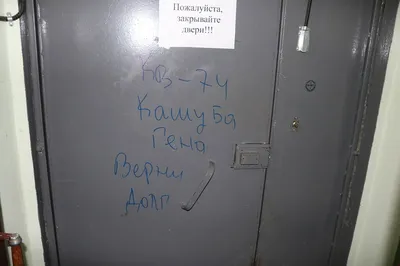 Пожалуйста,
закрывайте
двери!!!
КВ-74
Кашуба
Гена
Верни
Долг